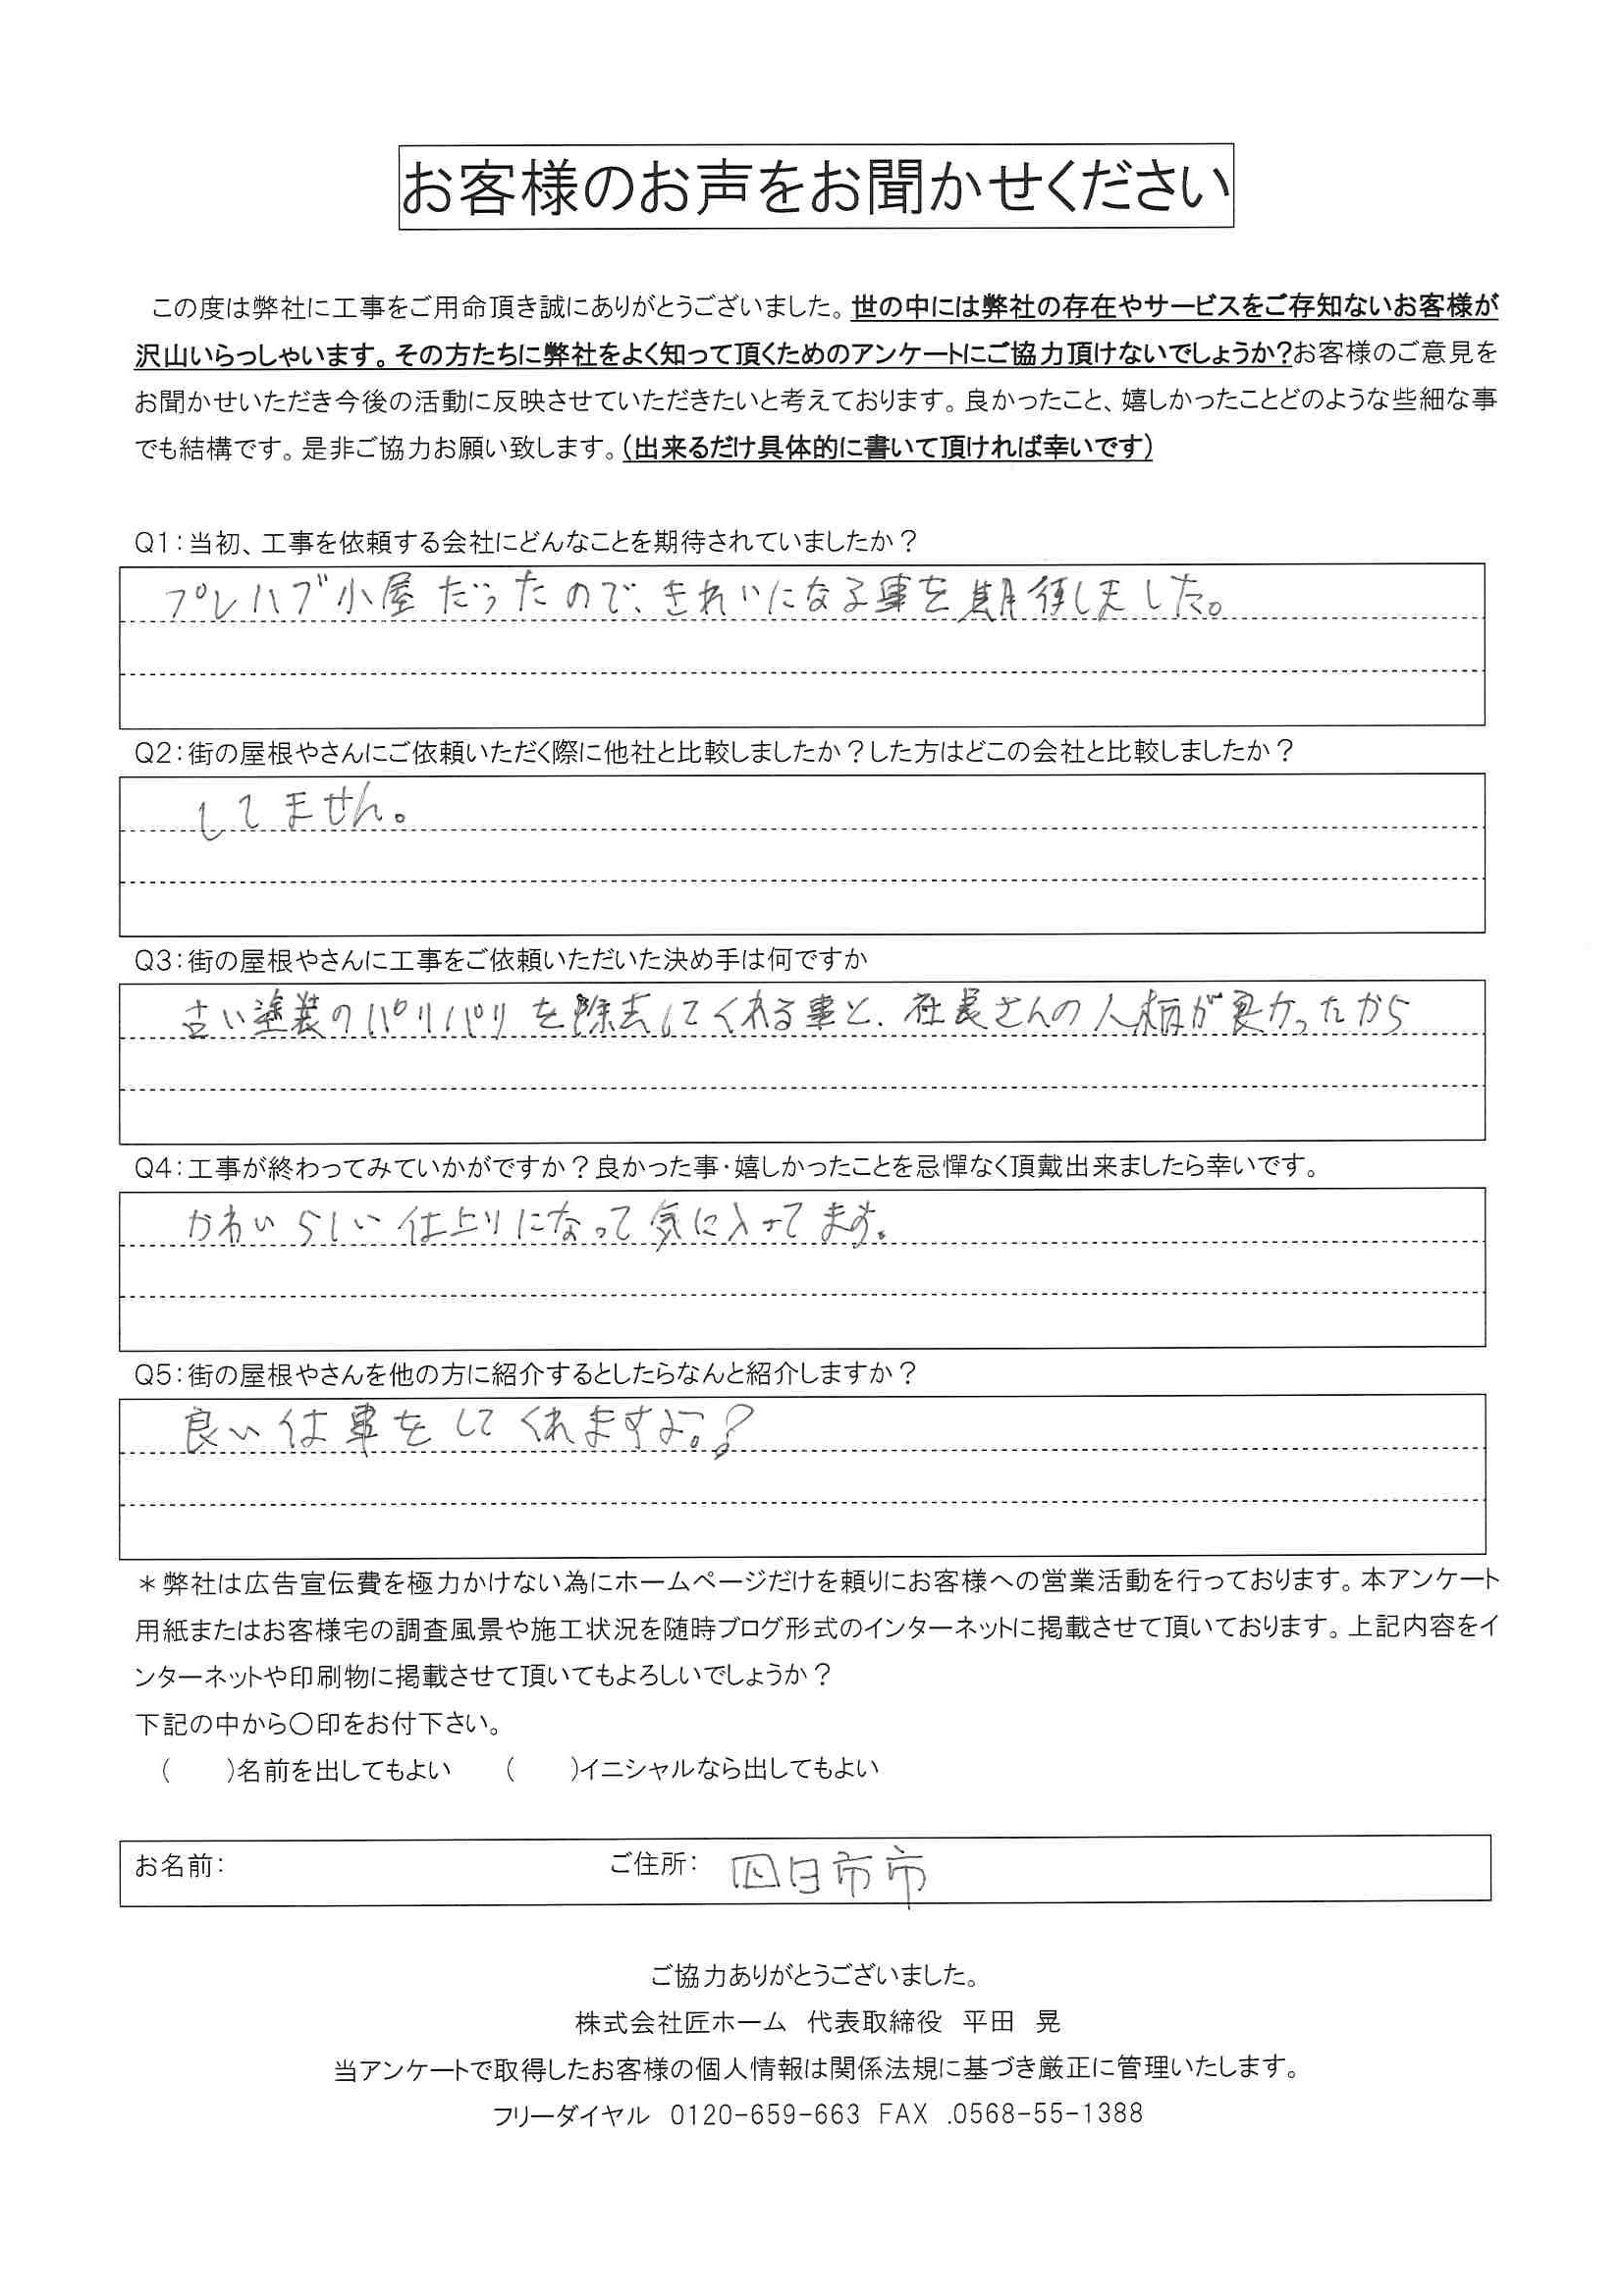 お客様のお声をお聞かせください
この度は弊社に工事をご用命頂き誠にありがとうございました。世の中には弊社の存在やサービスをご存知ないお客様が
沢山いらっしゃいます。その方たちに弊社をよく知って頂くためのアンケートにご協力頂けないでしょうか?お客様のご意見を
お聞かせいただき今後の活動に反映させていただきたいと考えております。良かったこと、嬉しかったことどのような些細な事
でも結構です。是非ご協力お願い致します。(出来るだけ具体的に書いて頂ければ幸いです)
Q1:当初、工事を依頼する会社にどんなことを期待されていましたか?
プレハブ小屋だったので、きれいになる事を期待しました。
Q2:街の屋根やさんにご依頼いただく際に他社と比較しましたか?した方はどこの会社と比較しましたか?
してません。
Q3:街の屋根やさんに工事をご依頼いただいた決め手は何ですか
古い塗装のパリパリを除去してくれる事と、社長さんの人柄が良かったから
Q4:工事が終わってみていかがですか?良かった事・嬉しかったことを忌憚なく頂戴出来ましたら幸いです。
かわいらしい仕上りになって気に入ってます。
Q5:街の屋根やさんを他の方に紹介するとしたらなんと紹介しますか?
良い仕事をしてくれますよ。?
*弊社は広告宣伝費を極力かけない為にホームページだけを頼りにお客様への営業活動を行っております。本アンケート
用紙またはお客様宅の調査風景や施工状況を随時ブログ形式のインターネットに掲載させて頂いております。上記内容をイ
ンターネットや印刷物に掲載させて頂いてもよろしいでしょうか?
下記の中から〇印をお付下さい。
(　　)名前を出してもよい　　(　　)イニシャルなら出してもよい
お名前:　ご住所: 四日市市
ご協力ありがとうございました。
株式会社匠ホーム 代表取締役 平田 晃
当アンケートで取得したお客様の個人情報は関係法規に基づき厳正に管理いたします。
フリーダイヤル 0120-659-663 FAX .0568-55-1388